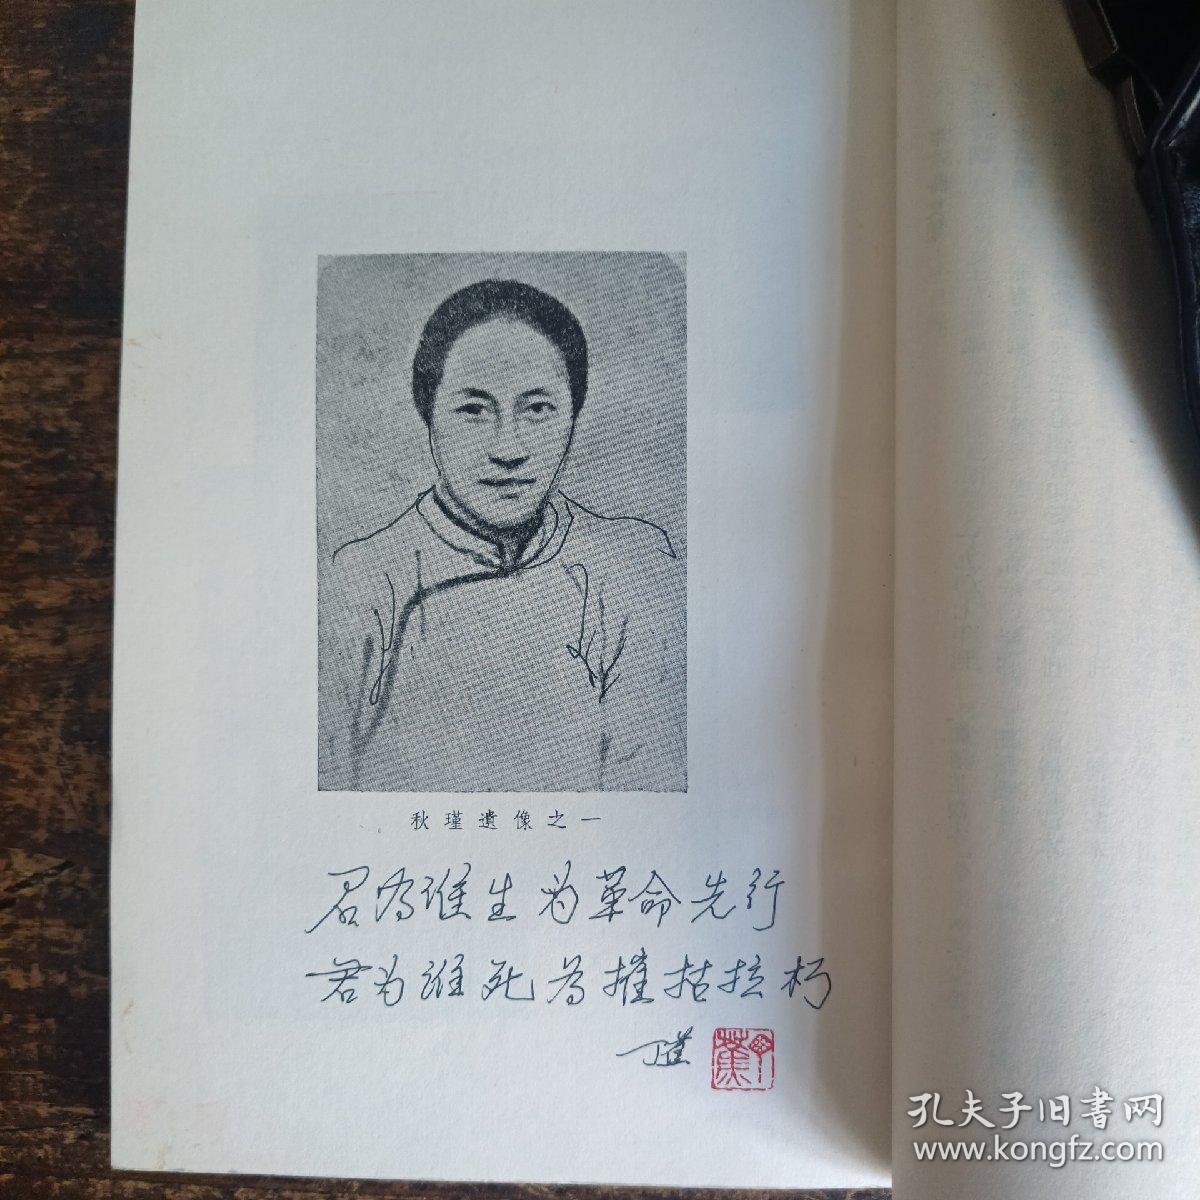 秋瑾遺像之一
君为谁生为革命先行
君为谁死为摧枯拉朽
孔夫子旧書网
www.kongfz.com